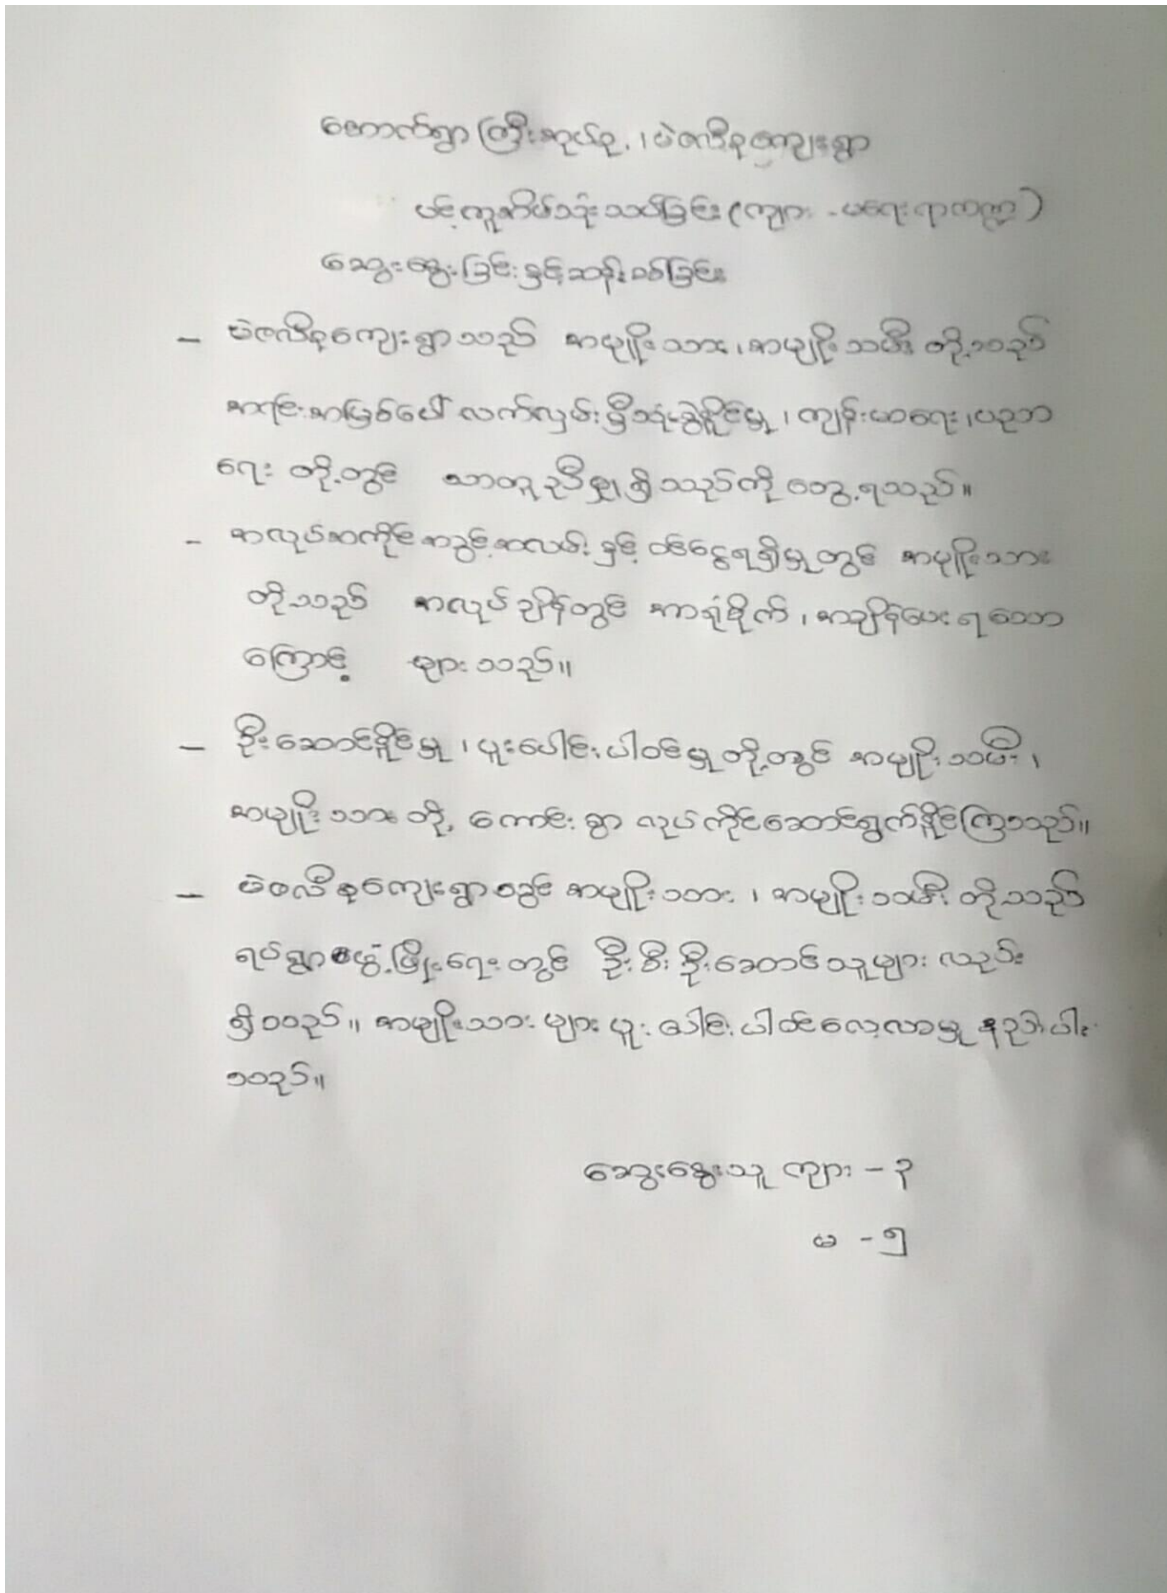 အောက်ရွာကြီးအုပ်စု၊ မဲဇလီစုကျေးရွာ
ပင့်ကူအိမ်သုံးသပ်ခြင်း (ကျား - မရေးရာကဏ္ဍ)
ဆွေးနွေးခြင်းနှင့်ဆန်းစစ်ခြင်း
– မဲဇလီစုကျေးရွာသည် အမျိုးသား၊ အမျိုးသမီး တို့သည်
အရင်းအမြစ်ပေါ် လက်လှမ်းမှီသုံးစွဲနိုင်မှု၊ ကျန်းမာရေး၊ ပညာ
ရေး တို့တွင် သာတူညီမျှရှိသည်ကို တွေ့ရသည်။
- အလုပ်အကိုင်အခွင့်အလမ်းနှင့် ဝင်ငွေရရှိမှုတွင် အမျိုးသား
တို့သည် အလုပ်ချိန်တွင် အာရုံစိုက်၊ အချိန်ပေးရသော
ကြောင့် များသည်။
– ဦးဆောင်နိုင်မှု၊ ပူးပေါင်းပါဝင်မှုတို့တွင် အမျိုးသမီး၊
အမျိုးသားတို့ ကောင်းစွာ လုပ်ကိုင်ဆောင်ရွက်နိုင်ကြသည်။
– မဲဇလီစုကျေးရွာတွင် အမျိုးသား၊ အမျိုးသမီး တို့သည်
ရပ်ရွာဖွံ့ဖြိုးရေးတွင် ဦးစီးဦးဆောင်သူများ လည်း
ရှိသည်။ အမျိုးသားများ ပူးပေါင်းပါဝင်လေ့လာမှု နည်းပါး
သည်။
ဆွေးနွေးသူ ကျား – ၃
မ - ၅